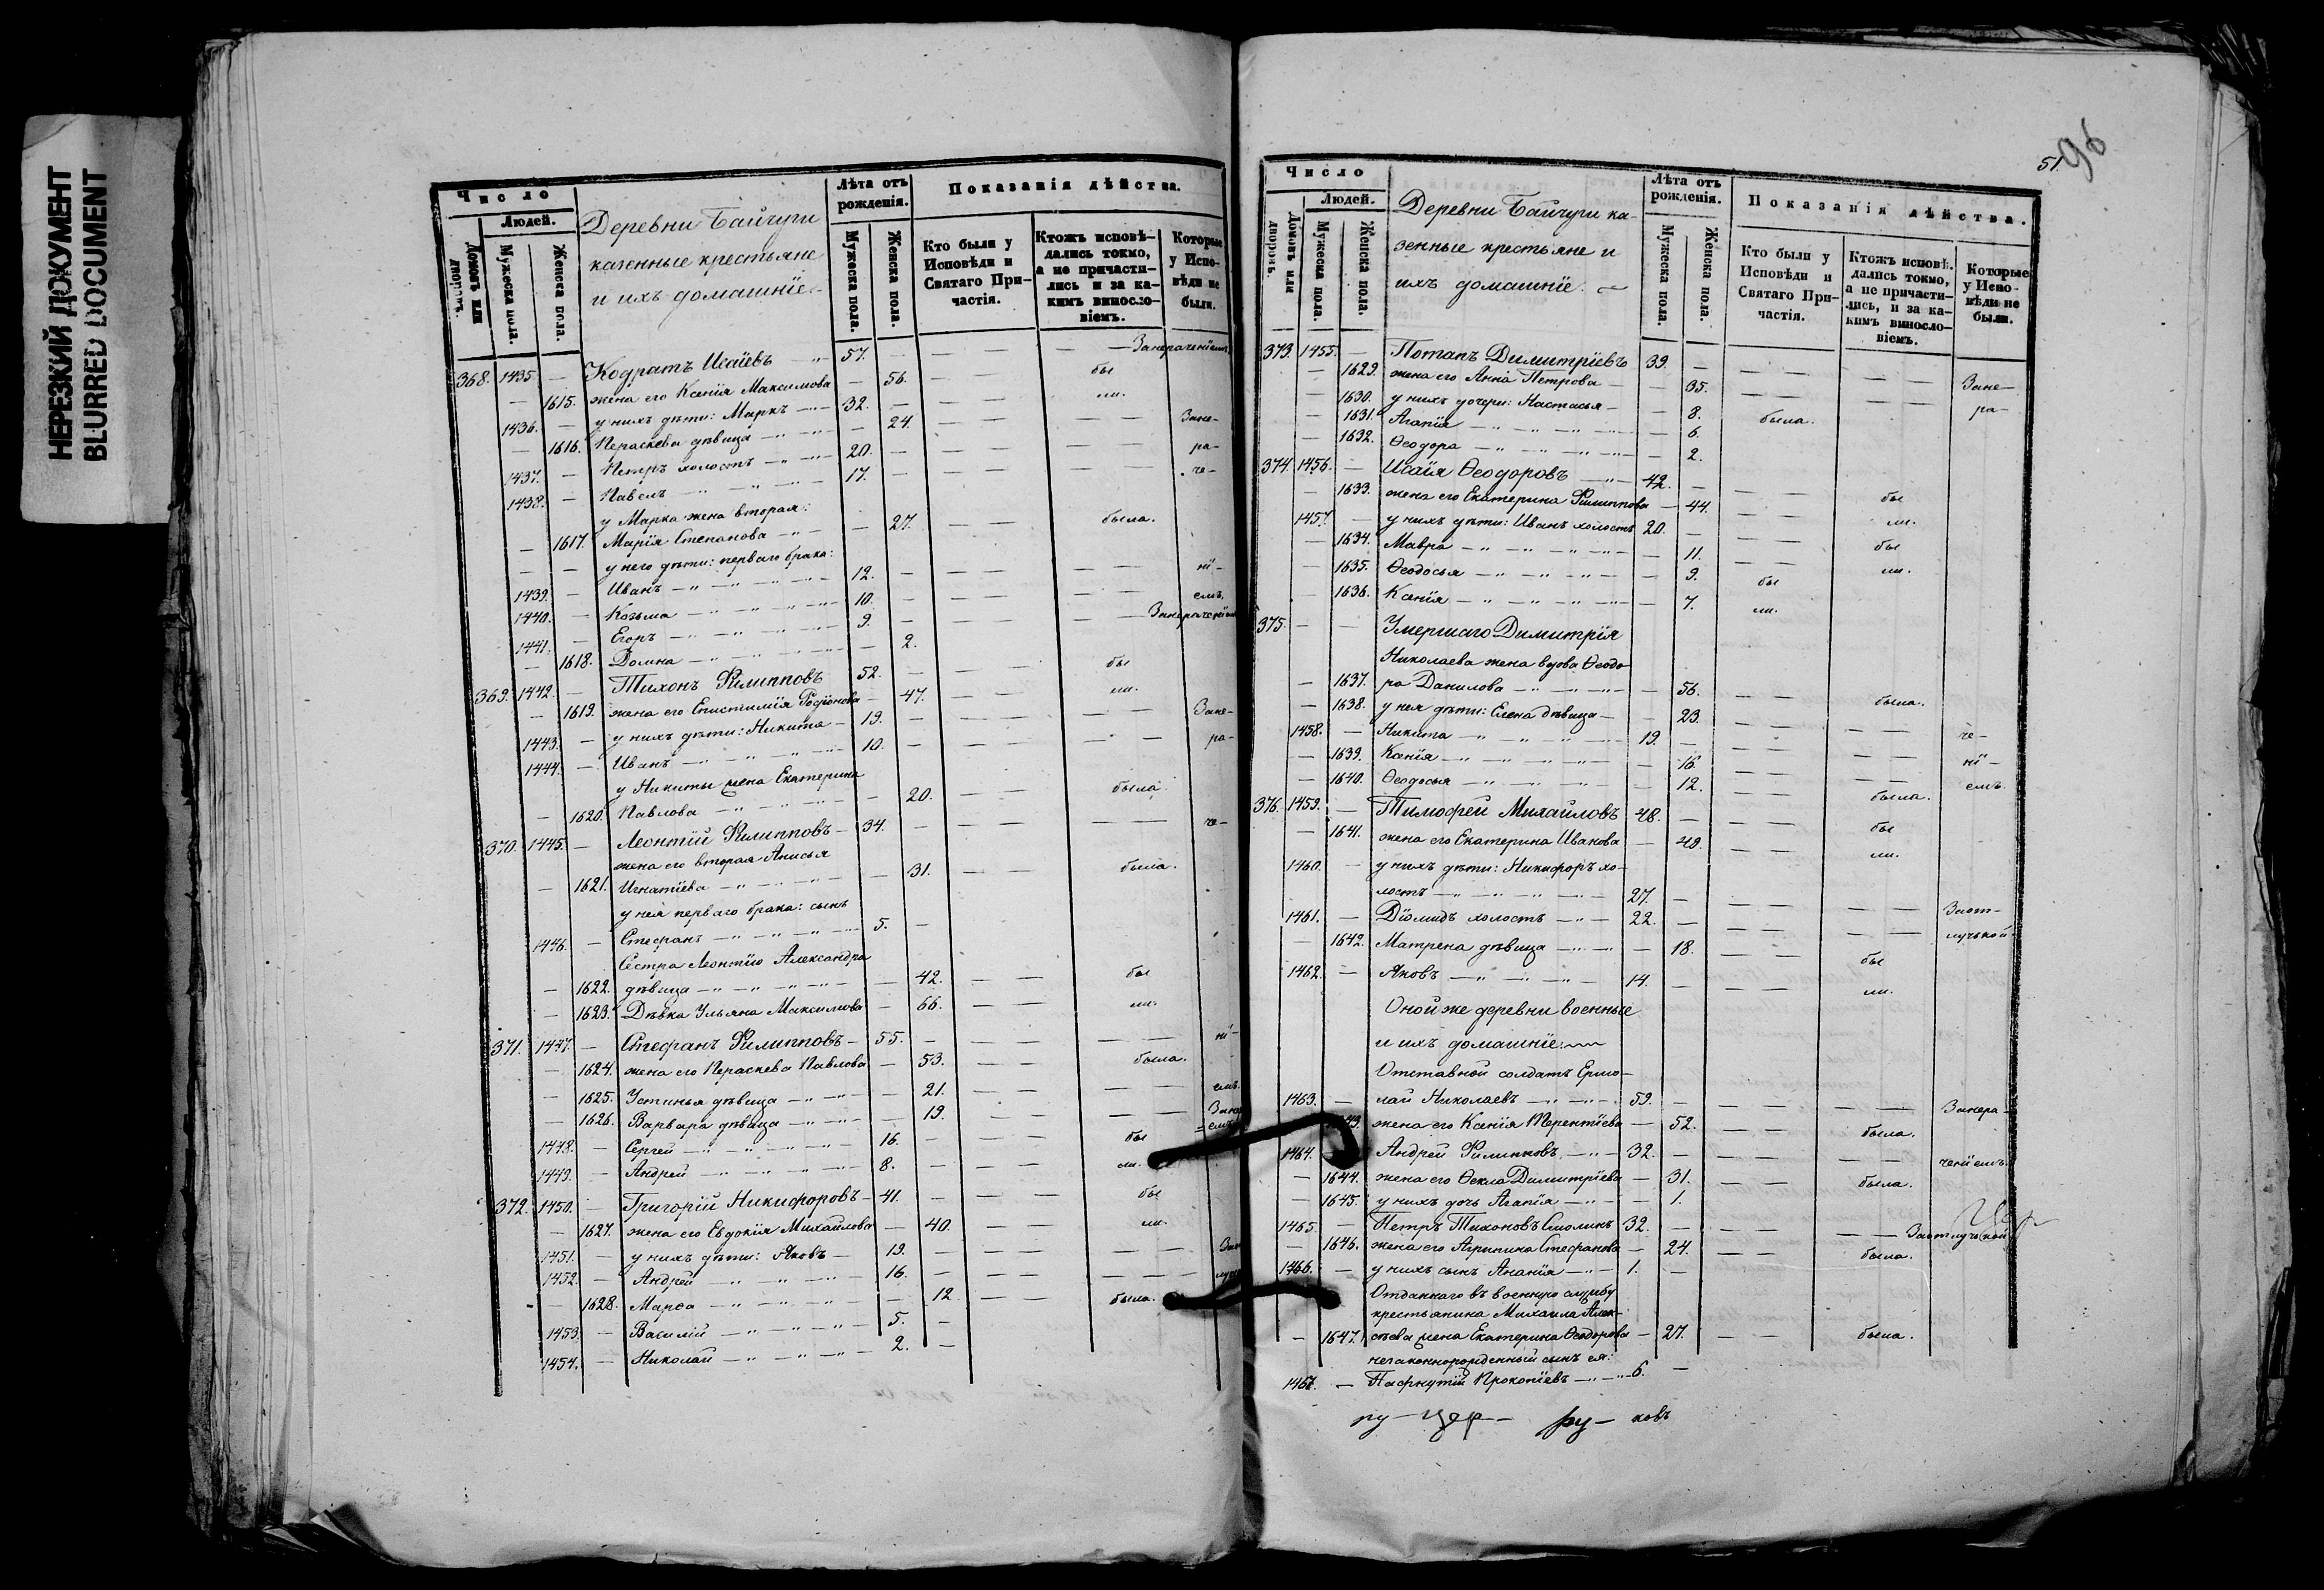 НЕРЕЗКИЙ ДОКУМЕНТ
BLURRED DOCUMENT
Число
Людей.
Домовъ или дворовъ.
Мужеска пола.
Женска пола.
Деревни Байчуги
казенные крестьяне
и ихъ домашніе.
Лѣта отъ рожденія.
Мужеска пола.
Женска пола.
Показанія дѣйства.
Кто были у Исповѣди и Святаго Причастія.
Ктожъ исповѣдались токмо, а не причастились и за какимъ винословіемъ.
Которые у Исповѣди не были.
368. 1435. — Кодратъ Исаіевъ — 57. — — — — — Занераченіемъ
— 1615. жена его Ксенія Максимова — 56. — — бы
1436. — у нихъ дѣти: Маркъ — 32. — — — ли.
— 1616. Пераскева дѣвица — 24. — — — Зане-
1437. — Петръ холостъ — 20. — — — ра-
1438. — Павелъ — 17. — — — че-
у Марка жена вторая:
— 1617. Марія Степанова — 27. — — была.
— — у него дѣти: перваго брака:
1439. — Иванъ — 12. — — — ні-
1440. — Козьма — 10. — — — емъ.
1441. — Егоръ — 9. — — — Занераченіемъ
— 1618. Домна — 2.
369. 1442. — Тихонъ Филипповъ 52. — — — бы
— 1619. жена его Епистимія Родіонова — 47. — — ли.
1443. — у нихъ дѣти: Никита — 19. — — — Зане-
1444. — Иванъ — 10. — — — ра-
у Никиты жена Екатерина
— 1620. Павлова — 20. — — была.
370. 1445. — Леонтій Филипповъ — 34. — — — че-
жена его вторая Анисья
— 1621. Игнатіева — 31. — — была.
у нея перваго брака: сынъ
1446. — Стефанъ — 5. —
Сестра Леонтію Александра
— 1622. дѣвица — 42. — — бы
— 1623. Дѣвка Ульяна Максимова — 66. — — ли.
371. 1447. — Стефанъ Филипповъ — 55. — — — ні-
— 1624. жена его Пераскева Павлова — 53. — — была.
— 1625. Устинья дѣвица — 21. — — — емъ.
— 1626. Варвара дѣвица — 19. — — — Зане
1448. — Сергей — 16. — — — бы
1449. — Андрей — 8. — — — ли.
372. 1450. — Григорій Никифоровъ — 41. — — — бы
— 1627. жена его Евдокія Михайлова — 40. — — ли.
1451. — у нихъ дѣти: Яковъ — 19. — — —
1452. — Андрей — 16. — — —
— 1628. Марѳа — 12. — — была.
1453. — Василій — 5. —
1454. — Николай — 2. —
51. 96
Число
Людей.
Домовъ или дворовъ.
Мужеска пола.
Женска пола.
Деревни Байчуги ка-
зенные крестьяне и
ихъ домашніе.
Лѣта отъ рожденія.
Мужеска пола.
Женска пола.
Показанія дѣйства.
Кто были у Исповѣди и Святаго Причастія.
Ктожъ исповѣдались токмо, а не причастились, и за какимъ винословіемъ.
Которые у Исповѣди не были.
373. 1455. — Потапъ Димитріевъ 39. — — — Зане-
— 1629. жена его Анна Петрова — 35. — — — ра-
— 1630. у нихъ дочери: Настасья — 8. была.
— 1631. Агапія — 6.
— 1632. Ѳеодора — 2.
374. 1456. — Исаія Ѳеодоровъ — 42. — — — бы
— 1633. жена его Екатерина Филиппова — 44. — — ли.
1457. — у нихъ дѣти: Иванъ холостъ 20. — — — бы
— 1634. Мавра — 11. — — ли.
— 1635. Ѳеодосья — 9. бы
— 1636. Ксенія — 7. ли.
375. — — Умершаго Димитрія
Николаева жена вдова Ѳеодо-
— 1637. ра Данилова — 56. — — была.
— 1638. у нея дѣти: Елена дѣвица — 23. — — — че-
1458. — Никита — 19. — — — ні-
— 1639. Ксенія — 16. — — — емъ.
— 1640. Ѳеодосья — 12. — — была.
376. 1459. — Тимофей Михайловъ 48. — — — бы
— 1641. жена его Екатерина Иванова — 49. — — ли.
1460. — у нихъ дѣти: Никифоръ хо-
лостъ — 27. — — — Заот-
1461. — Діомидъ холостъ — 22. — — — лучкой.
— 1642. Матрена дѣвица — 18. — — бы
1462. — Яковъ — 14. — — — ли.
Оной же деревни военные
и ихъ домашніе:
Отставной солдатъ Ермо-
1463. — лай Николаевъ — 59. — — — Занера-
1643. жена его Ксенія Терентіева — 52. — — была.
1464. — Андрей Филипповъ — 32. — — — ченіемъ.
— 1644. жена его Ѳекла Димитріева — 31. — — была.
— 1645. у нихъ дочь Агапія — 1.
1465 — Петръ Тихоновъ Смолинъ 32. — — — Заотлучкой
— 1646. жена его Агрипина Стефанова — 24. — — была.
1466. — у нихъ сынъ Ананія — 1. —
Отданнаго въ военную службу
крестьянина Михаила Алек-
— 1647. сѣева жена Екатерина Ѳеодорова — 27. — — была.
незаконнорожденный сынъ ея:
1467. — Пафнутій Прокопіевъ — 6. —
ру — цер — ру — ковъ